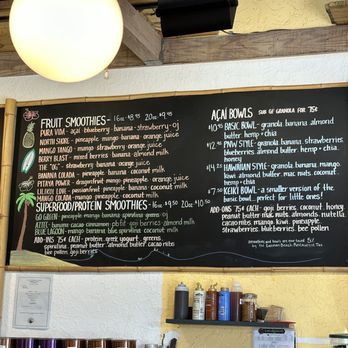 FRUIT SMOOTHIES - 16oz $8.95 20oz $9.95
PURA VIDA - açaí blueberry banana strawberry oj
NORTH SHORE - pineapple mango banana orange juice
MANGO TANGO - mango strawberry orange juice
BERRY BLAST - mixed berries banana almond milk
THE "OG" - strawberry banana orange juice
BANANA COLADA - pineapple banana coconut milk
PITAYA POWER - dragonfruit pineapple banana coconut milk
LILIKOI LOVE - passionfruit pineapple banana coconut milk
MANGO COLADA - mango pineapple coconut milk
SUPERFOOD/PROTEIN SMOOTHIES - 16oz $9.50 20oz $10.50
GO GREEN - pineapple mango banana spirulina greens oj
AZTEC - banana cacao pbfit goji berries almond milk
BLUE LAGOON - mango banana blue spirulina coconut milk
ADD-INS 75¢ EACH - protein, greek yogurt, greens,
spirulina, peanut butter, almond butter, cacao nibs
bee pollen, goji berries
AÇAÍ BOWLS SUB GF GRANOLA FOR 75¢
$10.95 BASIC BOWL - granola banana almond
butter hemp + chia
$12.95 PNW STYLE - granola banana strawberries
blueberries almond butter hemp + chia
honey
$14.25 HAWAIIAN STYLE - granola banana mango
kiwi almond butter mac nuts coconut
hemp + chia
$7.50 KEIKI BOWL - a smaller version of the
basic bowl... perfect for little ones!
ADD-INS 75¢ EACH - goji berries, coconut, honey,
peanut butter, mac nuts, almonds, nutella
cacao nibs, mango, kiwi, pineapple,
strawberries, blueberries, bee pollen